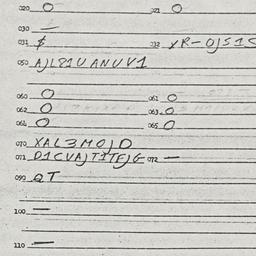 020 O 021 O
030 —
031 $ 032 XR-OJS1S
050 AJL81UANUV1
060 O 061 O
062 O 063 O
064 O 065 O
070 XAL3MOJD
071 D1CVAJT1TFJG 072 —
099 QT
100 —
110 —